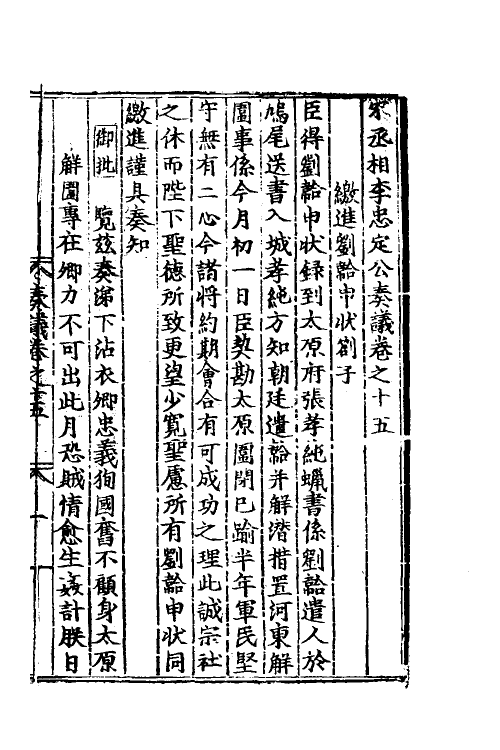 宋丞相李忠定公奏議卷之十五
繳進劉韐申狀劄子
臣得劉韐申狀録到太原府張孝純蠟書係劉韐遣人於
鳩尾送書入城孝純方知朝廷遣韐并解潛措置河東解
圍事係今月初一日臣契勘太原圍閉已踰半年軍民堅
守無有二心今諸將約期會合有可成功之理此誠宗社
之休而陛下聖德所致更望少寬聖慮所有劉韐申狀同
繳進謹具奏知
御批　覽兹奏涕下沾衣卿忠義狥國奮不顧身太原
解圍專在卿力不可出此月恐賊情愈生姦計朕日
奏議卷之十五